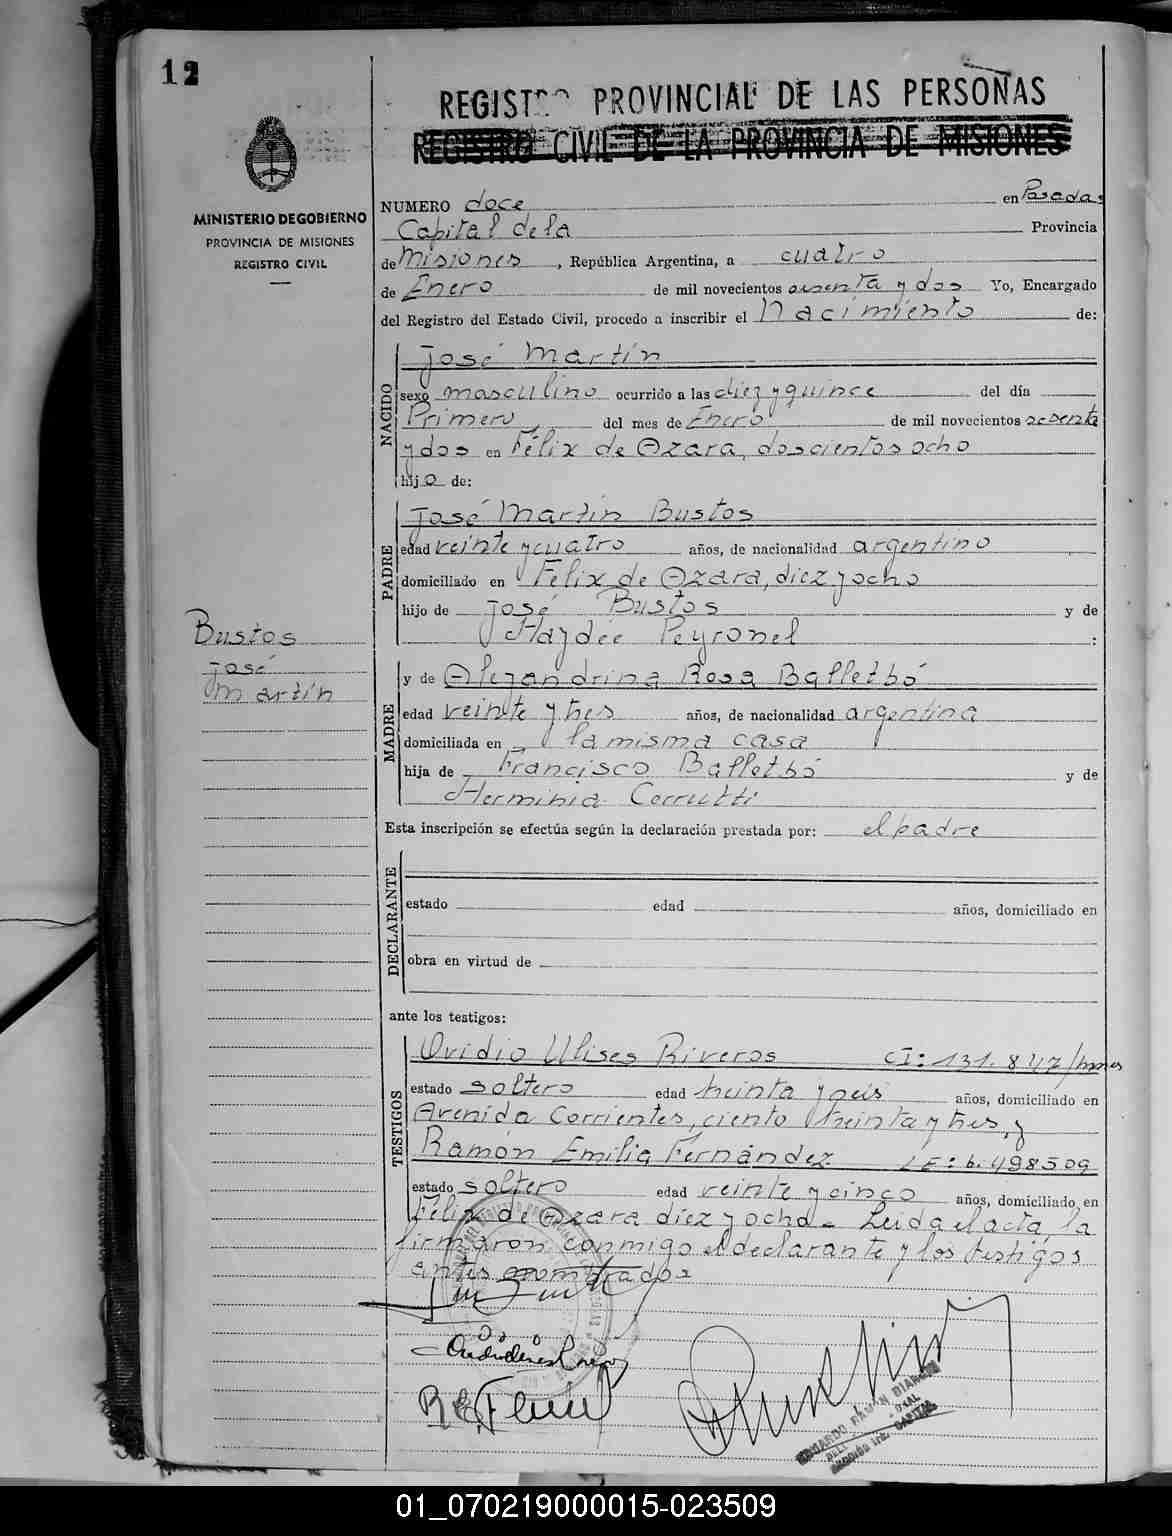 12
REGISTRO PROVINCIAL DE LAS PERSONAS
REGISTRO CIVIL DE LA PROVINCIA DE MISIONES
MINISTERIO DE GOBIERNO
PROVINCIA DE MISIONES
REGISTRO CIVIL
NUMERO doce en Posadas
Capital de la Provincia
de Misiones, República Argentina, a cuatro
de Enero de mil novecientos sesenta y dos Yo, Encargado
del Registro del Estado Civil, procedo a inscribir el Nacimiento de:
NACIDO
José Martín
sexo masculino ocurrido a las diez y quince del día
Primero, del mes de Enero de mil novecientos sesenta
y dos en Félix de Azara, doscientos ocho
hijo de:
PADRE
José Martín Bustos
edad veinte y cuatro años, de nacionalidad argentino
domiciliado en Félix de Azara, diez y ocho
hijo de José Bustos y de
Haydée Peyronel :
Bustos
José
Martín
MADRE
y de Alejandrina Rosa Balletbó
edad veinte y tres años, de nacionalidad argentina
domiciliada en la misma casa
hija de Francisco Balletbó y de
Herminia Cerrutti
Esta inscripción se efectúa según la declaración prestada por: el padre
DECLARANTE
estado edad años, domiciliado en
obra en virtud de
ante los testigos:
TESTIGOS
Ovidio Ulises Riveros CI: 131.847/
estado soltero edad treinta y seis años, domiciliado en
Avenida Corrientes, ciento treinta y tres, y
Ramón Emilio Fernández LE: 6.498509
estado soltero edad veinte y cinco años, domiciliado en
Félix de Azara diez y ocho - Leida el acta, la
firmaron conmigo el declarante y los testigos
antes nombrados
01_070219000015-023509